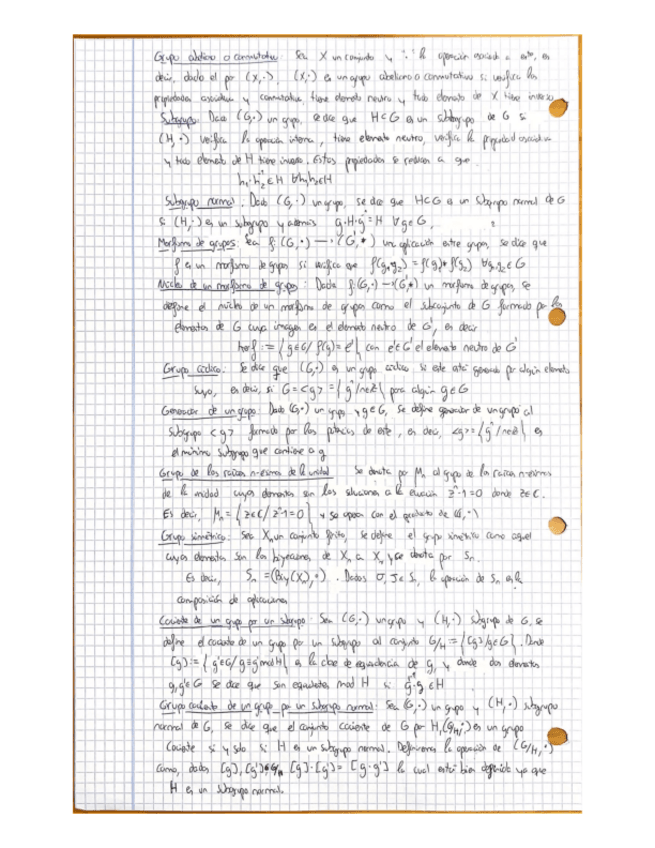 Grupo abeliano o conmutativo: Sea X un conjunto y "·" la operación asociada a este, es
decir, dado el par (X,·), (X,·) es un grupo abeliano o conmutativo si verifica las
propiedades asociativa y conmutativa, tiene elemento neutro y todo elemento de X tiene inverso.
Subgrupo: Dado (G,·) un grupo, se dice que H⊂G es un subgrupo de G si
(H,·) verifica la operación interna, tiene elemento neutro, verifica la propiedad asociativa
y todo elemento de H tiene inverso. Estas propiedades se reducen a que
h₁·h₂⁻¹∈H ∀h₁,h₂∈H
Subgrupo normal: Dado (G,·) un grupo, se dice que H⊂G es un subgrupo normal de G
si (H,·) es un subgrupo y además g·H·g⁻¹=H ∀g∈G,
Morfismo de grupos: Sea f:(G,·)→(G',*) una aplicación entre grupos, se dice que
f es un morfismo de grupos si verifica que f(g₁·g₂)=f(g₁)*f(g₂) ∀g₁,g₂∈G
Núcleo de un morfismo de grupos: Dado f:(G,·)→(G',*) un morfismo de grupos, se
define el núcleo de un morfismo de grupos como el subconjunto de G formado por los
elementos de G cuya imagen es el elemento neutro de G', es decir
ker f := {g∈G / f(g)=e'} con e'∈G' el elemento neutro de G'
Grupo cíclico: Se dice que (G,·) es un grupo cíclico si este está generado por algún elemento
suyo, es decir, si G=<g>={gⁿ/n∈ℤ} para algún g∈G
Generador de un grupo: Dado (G,·) un grupo y g∈G, se define generador de un grupo al
subgrupo <g> formado por las potencias de este, es decir, <g>={gⁿ/n∈ℤ} es
el mínimo subgrupo que contiene a g
Grupo de las raíces n-ésimas de la unidad: Se denota por Mₙ al grupo de las raíces n-ésimas
de la unidad cuyos elementos son las soluciones a la ecuación zⁿ-1=0 donde z∈ℂ.
Es decir, Mₙ={z∈ℂ/zⁿ-1=0} y se opera con el producto de (ℂ,·)
Grupo simétrico: Sea Xₙ un conjunto finito, se define el grupo simétrico como aquel
cuyos elementos son las biyecciones de Xₙ a Xₙ y se denota por Sₙ.
Es decir, Sₙ=(Biy(Xₙ),∘). Dados σ, τ∈Sₙ, la operación de Sₙ es la
composición de aplicaciones
Cociente de un grupo por un subgrupo: Sea (G,·) un grupo y (H,·) subgrupo de G, se
define el cociente de un grupo por un subgrupo al conjunto G/H={[g]/g∈G}. Donde
[g]:={g'∈G/g≡g' mod H} es la clase de equivalencia de g, y donde dos elementos
g,g'∈G se dice que son equivalentes mod H si g⁻¹·g'∈H
Grupo cociente de un grupo por un subgrupo normal: Sea (G,·) un grupo y (H,·) subgrupo
normal de G, se dice que el conjunto cociente de G por H, (G/H,·) es un grupo
cociente si y solo si H es un subgrupo normal. Definiremos la operación de (G/H,·)
como, dados [g],[g']∈G/H [g]·[g']=[g·g'] la cual está bien definida ya que
H es un subgrupo normal.